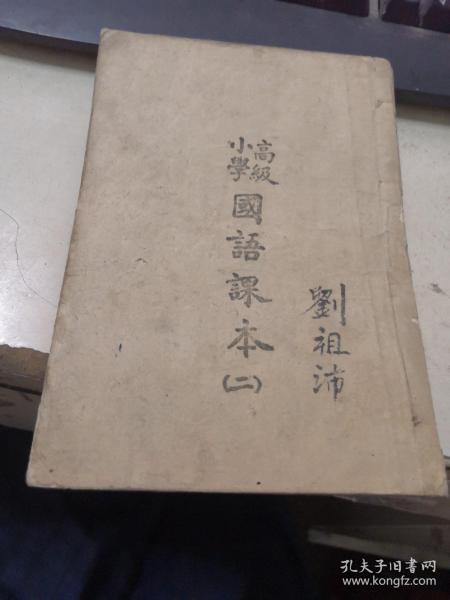 高級
小學
國語課本(二)
劉祖沛
孔夫子旧书网
www.kongfz.com